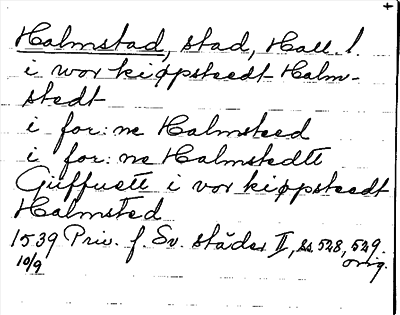 +
Halmstad, stad, Hall. l.
i vor kiøpstedt Halm-
stedt
i for: ne Halmsteed
i for: ne Halmstedtt
Giiffuett i vor kiøpstedt
Halmsted
1539 Priv. f. Sv. städer II, ss. 528, 529.
10/9 orig.